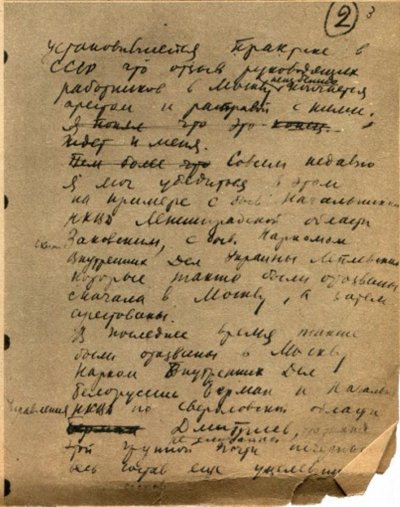 2 3
установившейся практике в
СССР что отзыв руководящих
работников в Москву неизбежно кончается
арестом и расправой с ними.
Я понял что это конец.
ждет и меня.
Тем более что Совсем недавно
я мог убедиться в этом
на примере с быв. Начальником
НКВД Ленинградской области
Заковским, с быв. Наркомом
Внутренних Дел Украины Леплевским
которые также были отозваны
сначала в Москву, а затем
арестованы.
В последнее время также
были отозваны в Москву
Нарком Внутренних Дел
Белоруссии Берман и Начальн
Управления НКВД по Свердловской области
Дмитриев,
этой группой почти
весь состав еще уцелевш